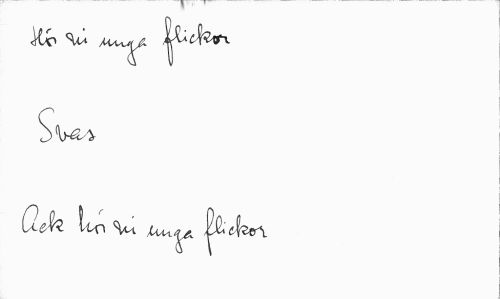 Hör ni unga flickor
Svas
Ack hör ni unga flickor